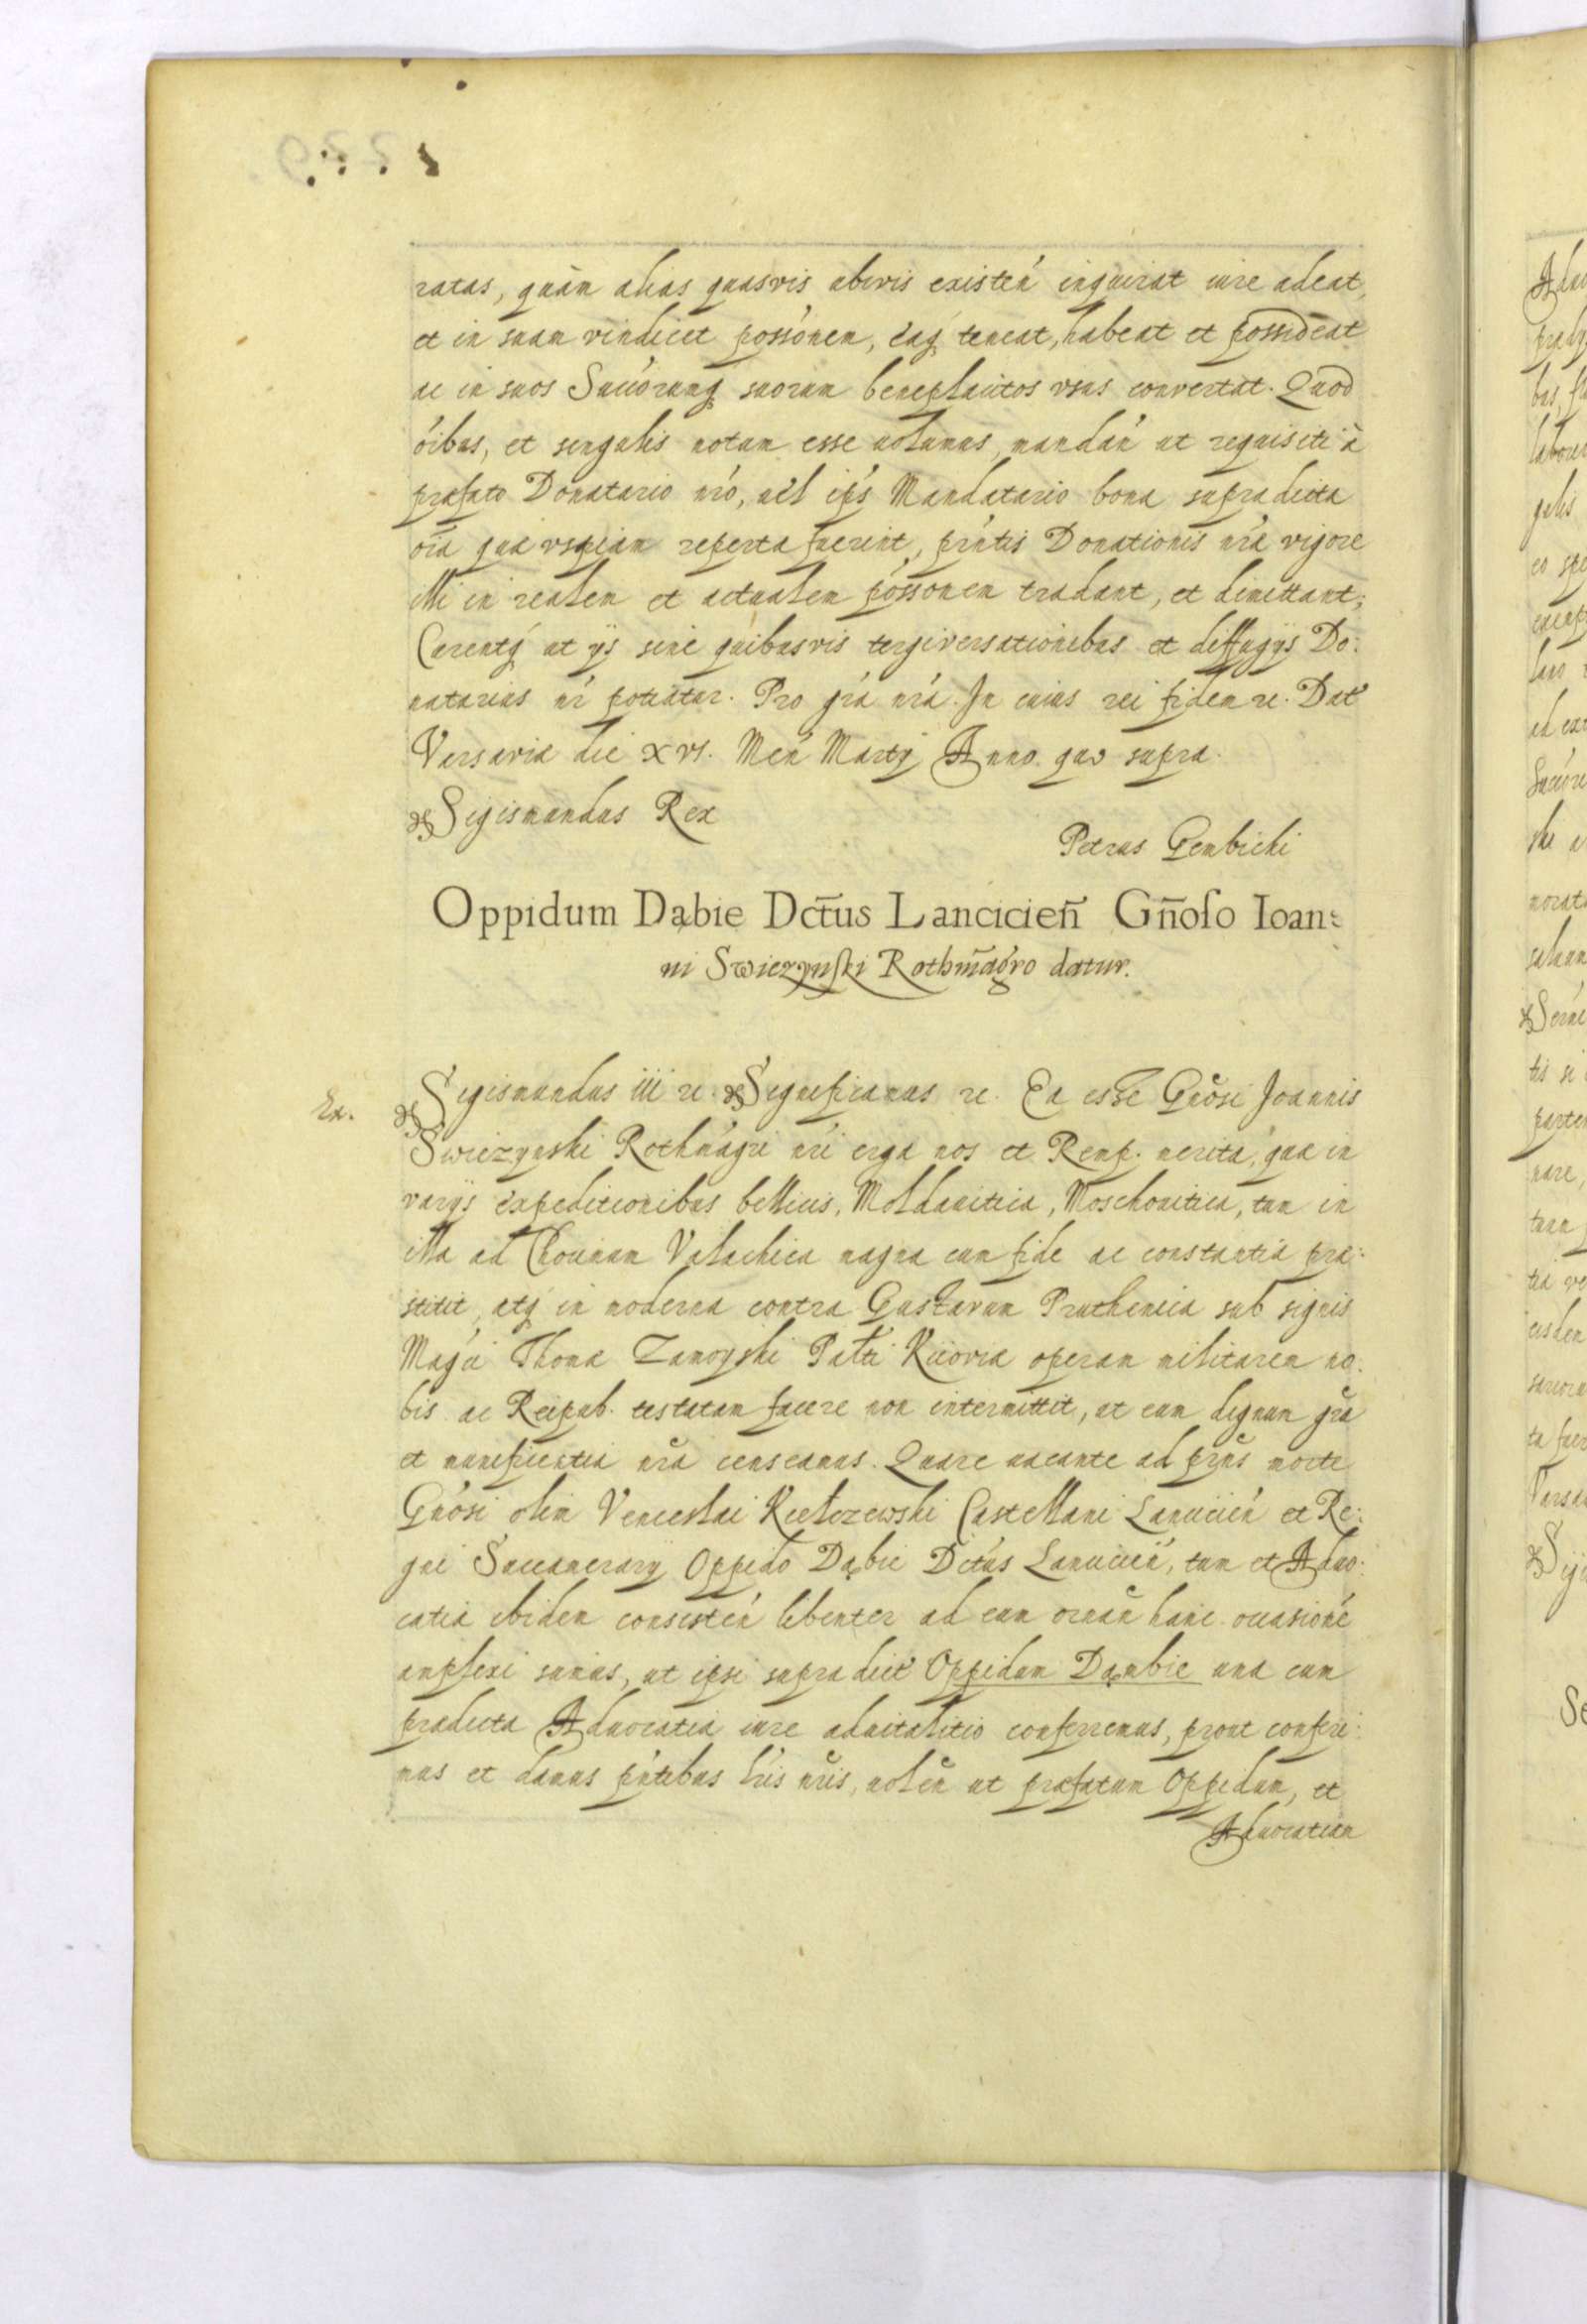 ratas, quàm alias quasvis ubivis existeń inquirat iure adeat,
et in suam vindicet possónem, eaq́ teneat, habeat et possideat
ac in suos Succórumq́ suorum beneplacitos vsus convertat. Quod
óibus, et singulis notum esse uolumus, mandań ut requisiti à
præfato Donatario nró, uel ipś Mandatario bona supradicta
oíá quæ vspiam reperta fuerint, prńtis Donationis nrǽ vigore
illi in realem et actualem póssonem tradant, et dimittant;
Curentq́ ut ijs sine quibusvis tergiversationibus et deffugijs Do:
natarius nŕ potiatur. Pro grá nrá. In cuius rei fidem ⁊c. Dat́
Varsaviæ die XVI. Meń Martij Anno quo supra.
Sigismundus Rex
Petrus Gembicki
Oppidum Dąbie Dct̄us Lancicień Gn̄oso Ioan:
ni Swiezynski Rothm̄agŕo datur.
Ex. Sigismundus iii ⁊c. Significamus ⁊c. Ea esse Gnósi Joannis
Swiezynski Rothmágri nrí erga nos et Remp. merita, quæ in
varijs expeditionibus bellicis, Moldauitica, Moschouitica, tum in
illa ad Chocimum Valachica magna cum fide ac constantia præ:
stitit, atq́ in moderna contra Gustavum Pruthenica sub signis
Mágci Thomæ Zamoyski Palti Kiioviæ operam militarem no:
bis ac Reipub. testatam facere non intermittit, ut eum dignum grá
et munificentia nrá censeamus. Quare uacante ad prńs morte
Gnósi olim Venceslai Kiełczewski Castellani Lancicień et Re:
gni Succamerarij Oppido Dąbie Dctús Lancicień, tum et Aduo:
catia ibidem consisteń libenter ad eum ornań hanc occasioné
amplexi sumus, ut ipsi supradict́ Oppidum Dąmbie una cum
prædicta Aduocatia iure aduitalitio conferremus, prout conferi:
mus et damus pńtibus lrís nrís, uoleń ut præfatum Oppidum, et
Aduocatiam